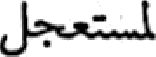 لمستعجل